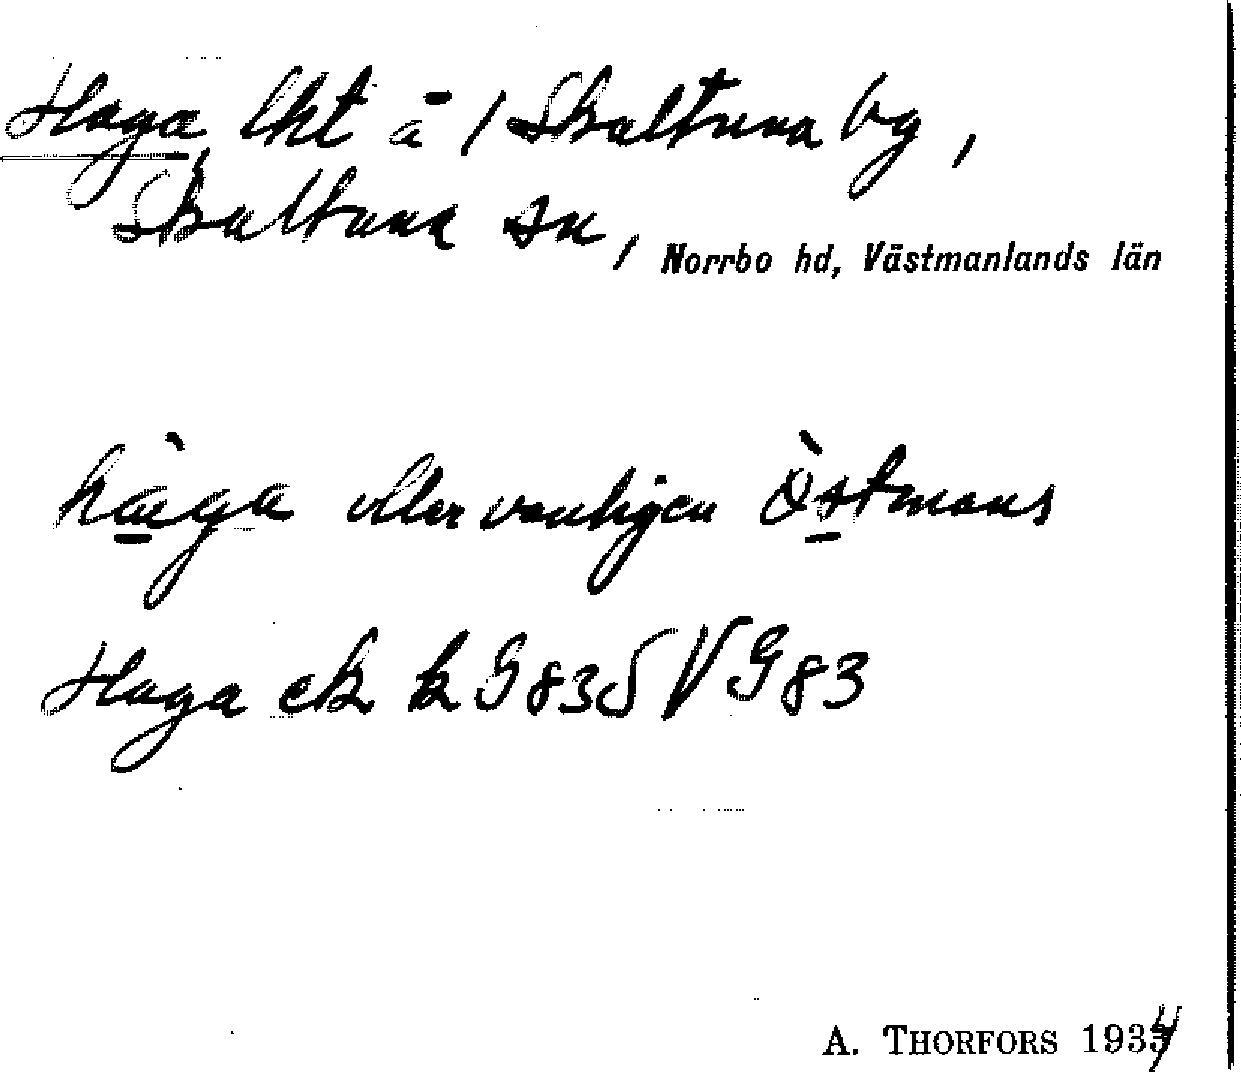 Haga, lht å 1 Skultuna by,
Skultuna sn, Norrbo hd, Västmanlands län
hàga eller vanligen Östmans
Haga ek k G 83 S V G 83
A. THORFORS 1934